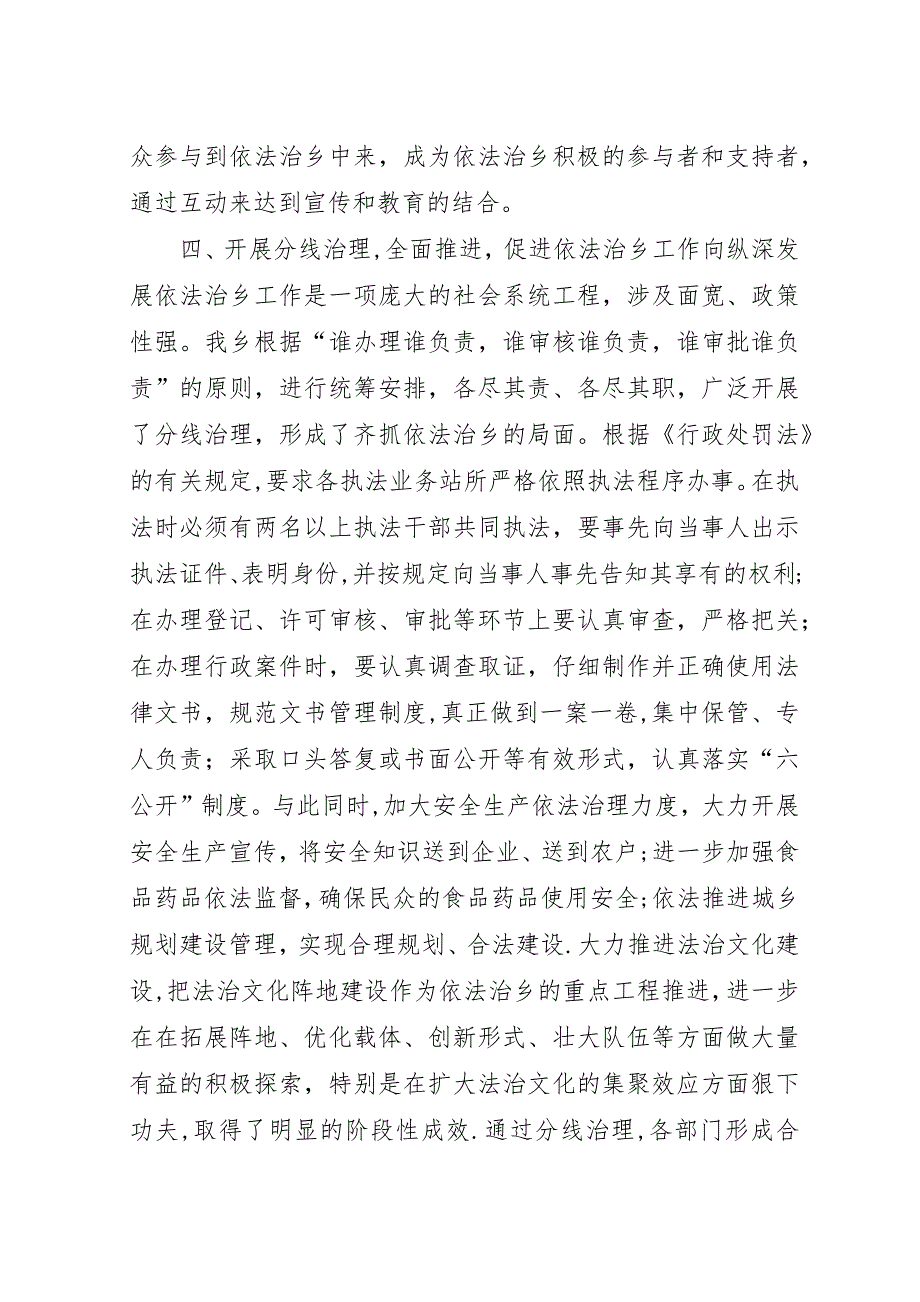 众参与到依法治乡中来，成为依法治乡积极的参与者和支持者，
通过互动来达到宣传和教育的结合。
四、开展分线治理,全面推进，促进依法治乡工作向纵深发
展依法治乡工作是一项庞大的社会系统工程，涉及面宽、政策
性强。我乡根据“谁办理谁负责，谁审核谁负责，谁审批谁负
责”的原则，进行统筹安排，各尽其责、各尽其职，广泛开展
了分线治理，形成了齐抓依法治乡的局面。根据《行政处罚法》
的有关规定,要求各执法业务站所严格依照执法程序办事。在执
法时必须有两名以上执法干部共同执法，要事先向当事人出示
执法证件、表明身份,并按规定向当事人事先告知其享有的权利;
在办理登记、许可审核、审批等环节上要认真审查，严格把关；
在办理行政案件时，要认真调查取证，仔细制作并正确使用法
律文书，规范文书管理制度,真正做到一案一卷,集中保管、专
人负责；采取口头答复或书面公开等有效形式，认真落实“六
公开”制度。与此同时,加大安全生产依法治理力度，大力开展
安全生产宣传，将安全知识送到企业、送到农户;进一步加强食
品药品依法监督,确保民众的食品药品使用安全;依法推进城乡
规划建设管理，实现合理规划、合法建设.大力推进法治文化建
设,把法治文化阵地建设作为依法治乡的重点工程推进，进一步
在在拓展阵地、优化载体、创新形式、壮大队伍等方面做大量
有益的积极探索，特别是在扩大法治文化的集聚效应方面狠下
功夫,取得了明显的阶段性成效.通过分线治理,各部门形成合